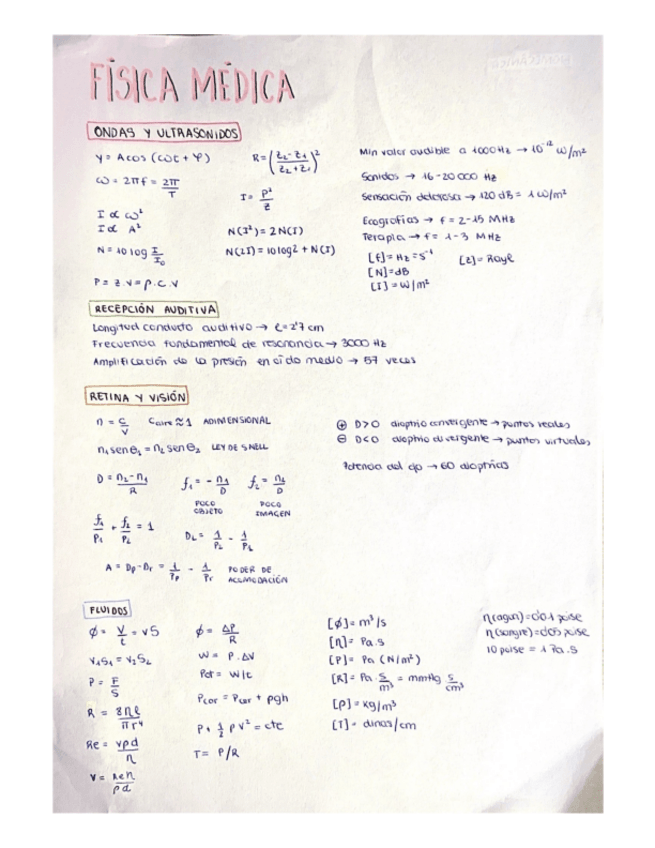 FÍSICA MÉDICA
ONDAS Y ULTRASONIDOS
y = A cos (ωt + φ)
ω = 2πf = 2π/T
I ∝ ω²
I ∝ A²
N = 10 log I/I₀
P = z.v = ρ.c.v
R = (z₂-z₁/z₂+z₁)²
I = P²/z
N(I²) = 2N(I)
N(2I) = 10 log2 + N(I)
Min valor audible a 1000Hz → 10⁻¹² W/m²
Sonidos → 16-20 000 Hz
Sensación dolorosa → 120 dB = 1 W/m²
Ecografías → f = 2-15 MHz
Terapia → f = 1-3 MHz
[f] = Hz = s⁻¹
[z] = Rayl
[N] = dB
[I] = W/m²
RECEPCIÓN AUDITIVA
Longitud conducto auditivo → l = 2'7 cm
Frecuencia fundamental de resonancia → 3000 Hz
Amplificación de la presión en oído medio → 57 veces
RETINA Y VISIÓN
n = c/v Caire ≈ 1 ADIMENSIONAL
n₁ sen θ₁ = n₂ sen θ₂ LEY DE SNELL
D = n₂-n₁/R
f₁ = - n₁/D
f₂ = n₂/D
FOCO OBJETO
FOCO IMAGEN
f₁/P₁ + f₂/P₂ = 1
DL = 1/P₂ - 1/P₁
A = Dp - Dr = 1/Pp - 1/Pr PODER DE ACOMODACIÓN
⊕ D>0 dioptrio convergente → puntos reales
⊖ D<0 dioptrio divergente → puntos virtuales
Potencia del ojo → 60 dioptrías
FLUIDOS
ϕ = V/t = vS
v₁S₁ = v₂S₂
P = F/S
R = 8ηl/πr⁴
Re = vρd/η
V = Re η/ρd
ϕ = ΔP/R
W = P.ΔV
Pot = W/t
P + ½ ρv² = cte
T = P/R
[ϕ] = m³/s
[η] = Pa.s
[P] = Pa (N/m²)
[R] = Pa. s/m³ = mmHg s/cm³
[ρ] = kg/m³
[T] = dinas/cm
η(agua) = 0'01 poise
η(sangre) = 0'05 poise
10 poise = 1 Pa.s